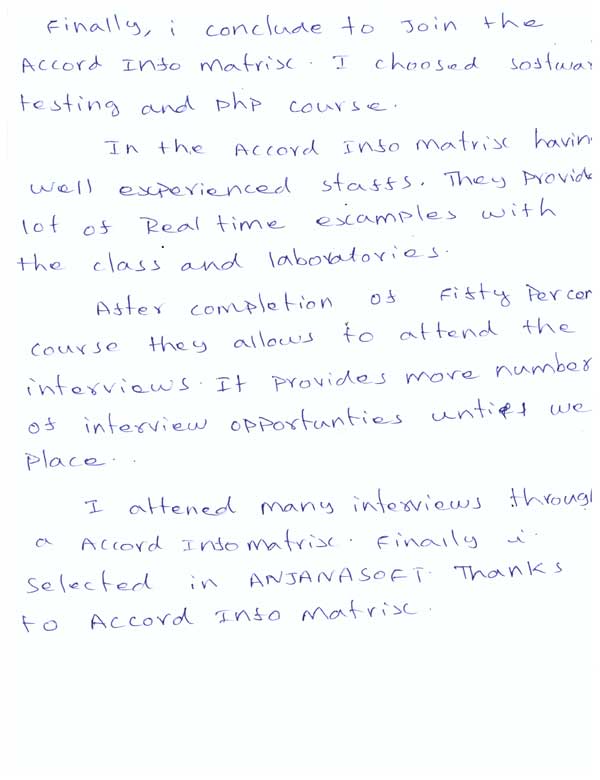 Finally, i conclude to Join the
Accord Info matrix. I choosed softwar
testing and php course.
In the Accord Info matrix havin
well experienced staffs. They Provid
lot of Real time examples with
the class and laboratories.
After completion of Fifty Percen
course they allows to attend the
interviews. It Provides more number
of interview opportunties until we
Place..
I attened many interviews throug
a Accord Info matrix. Finally i
selected in ANJANASOFT. Thanks
to Accord Info matrix.